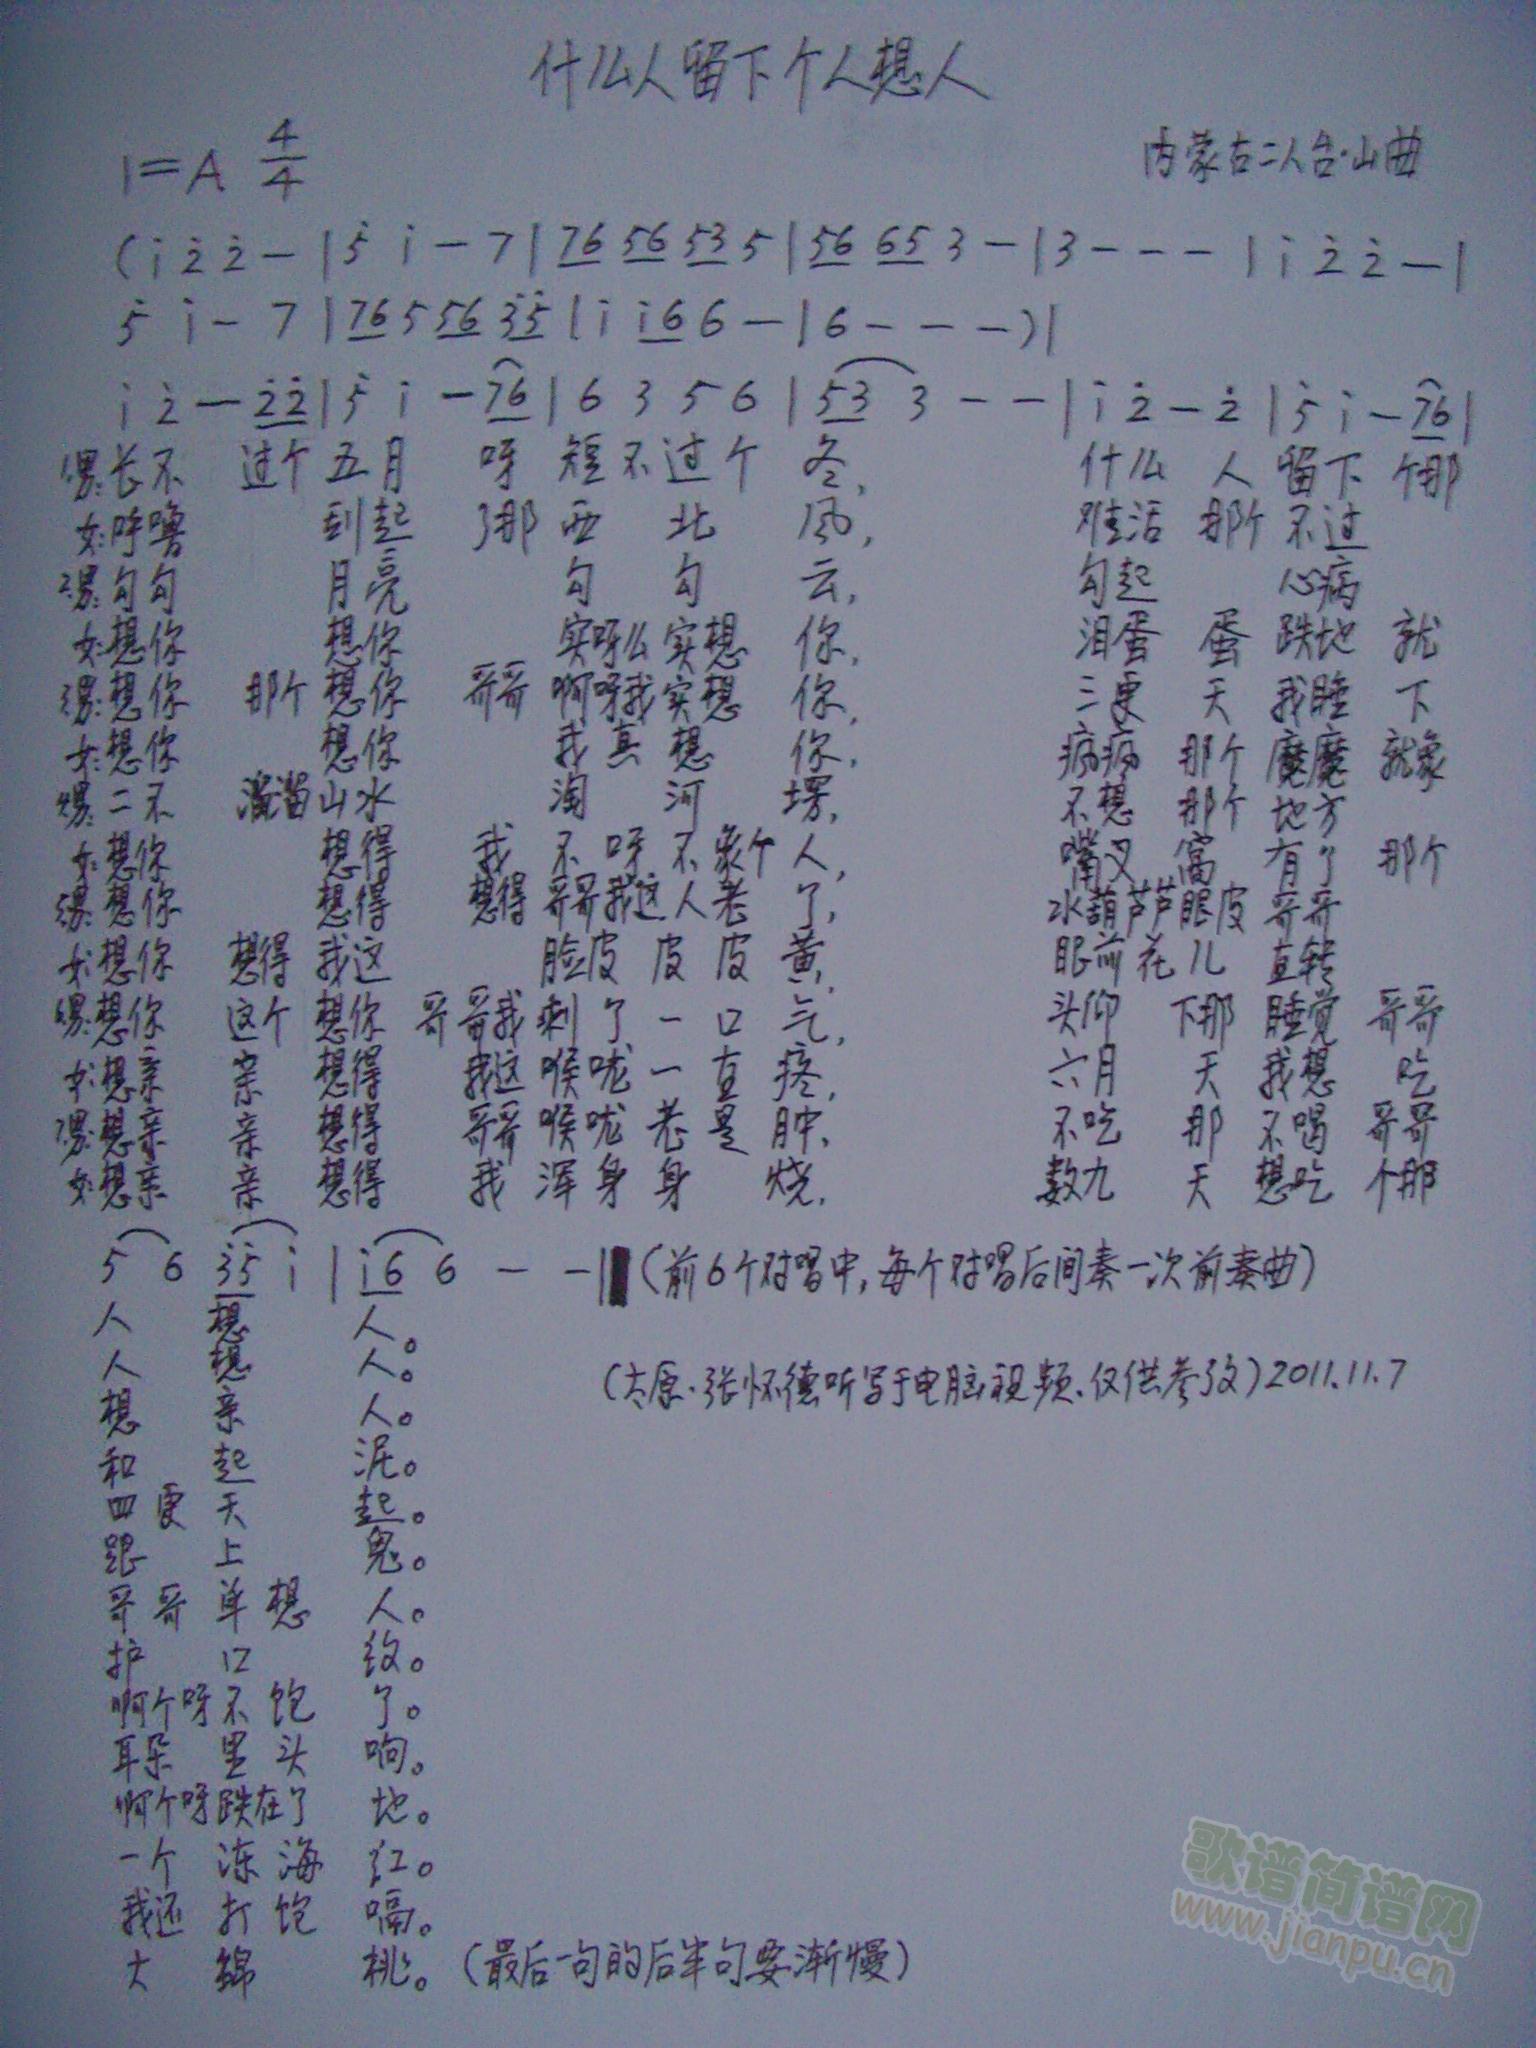 什么人留下个人想人
1=A 4/4
内蒙古二人台·山曲
(i̇ 2̇ 2̇ — | 5̇ i̇ — 7 | 76 56 53 5 | 56 65 3 — | 3 — — — | i̇ 2̇ 2̇ — |
5̇ i̇ — 7 | 76 5 56 3̇5̇ | i̇ i̇6 6 — | 6 — — — ) |
i̇ 2̇ — 2̇2̇ | 5̇ i̇ — 76 | 6 3 5 6 | 53 3 — — | i̇ 2̇ — 2̇ | 5̇ i̇ — 76 |
1男:长不 过个 五月 呀 短不过个 冬, 什么 人 留下 个那
女:呼噜 到起 了那 西 北 风, 难活 那个 不过
2男:勾勾 月亮 勾 勾 云, 勾起 心病
女:想你 想你 实呀么实想 你, 泪蛋 蛋 跌地 就
3男:想你 那个 想你 哥哥 啊呀我实想 你, 三更 天 我睡 下
女:想你 想你 我真想 你, 病病 那个 魔魔 就象
4男:二不 溜溜 山水 淘 河 塄, 不想 那个 地方
女:想你 想得 我 不呀不象个 人, 嘴叉 窝 有了 那个
5男:想你 想得 想得 哥哥我这人老 了, 水葫芦芦眼皮 哥哥
女:想你 想得 我这 脸皮 皮 皮 黄, 眼前花儿 直转
6男:想你 这个 想你 哥哥我 剩了一口 气, 头仰 下那 睡觉 哥哥
女:想亲 亲 想得 我这 喉咙一直 疼, 六月 天 我想 吃
7男:想亲 亲 想得 哥哥 喉咙老是 肿, 不吃 那 不喝 哥哥
女:想亲 亲 想得 我 浑身身 烧, 数九 天 想吃 个那
5 6 3̇5̇ i̇ | i̇6 6 — — ‖ (前6个对唱中,每个对唱后间奏一次前奏曲)
人 想 人。
人 想 人。
(太原·张怀德听写于电脑视频.仅供参考)2011.11.7
想 亲 人。
和 起 泥。
四更 天 起。
跟 上 鬼。
哥哥 单想 人。
护 口 纹。
啊个呀不饱 了。
耳朵 里头 响。
啊个呀跌在了 地。
一个 冻海 红。
我还 打饱 嗝。
大 绵 桃。(最后一句的后半句要渐慢)
歌谱简谱网
www.jianpu.cn